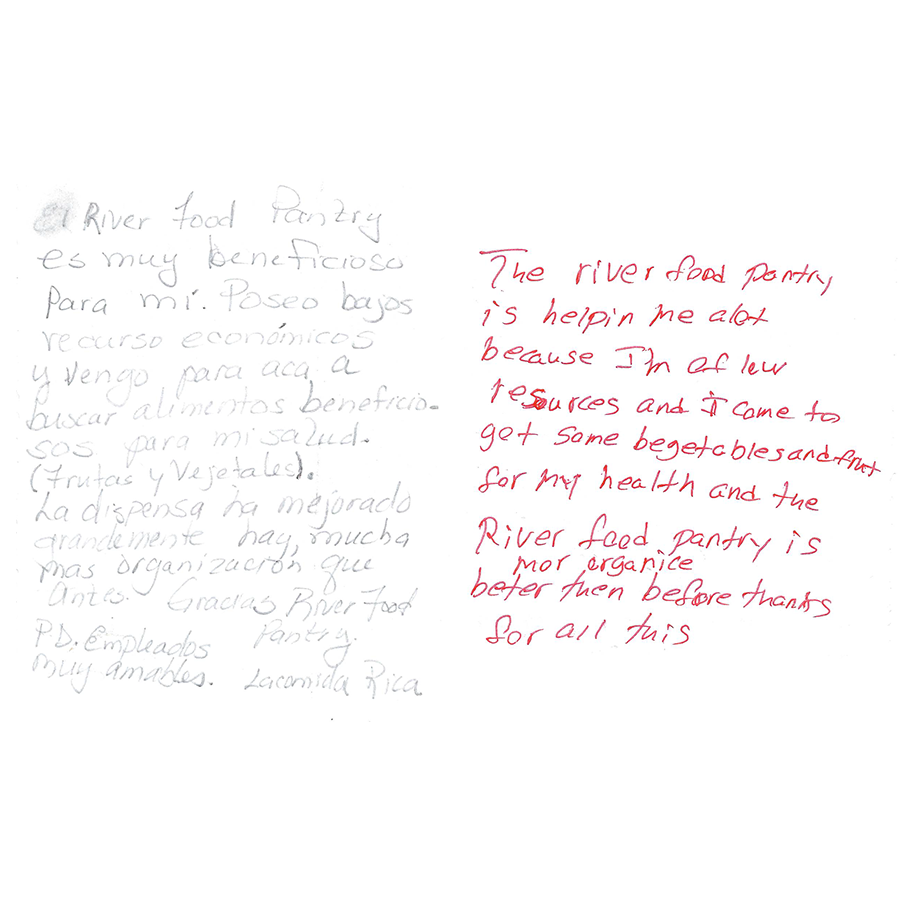 El River Food Pantry
es muy beneficioso
para mi. Poseo bajos
recurso económicos
y vengo para aca a
buscar alimentos beneficio-
sos para mi salud.
(frutas y Vejetales).
La dispensa ha mejorado
grandemente hay, mucha
mas organización que
antes. Gracias River Food
Pantry.
P.D. Empleados
muy amables. La comida Rica
The river food pantry
is helpin me alot
because I'm of low
resources and I come to
get some begetables and fruit
for my health and the
River food pantry is
mor organice
beter then before thanks
for all this